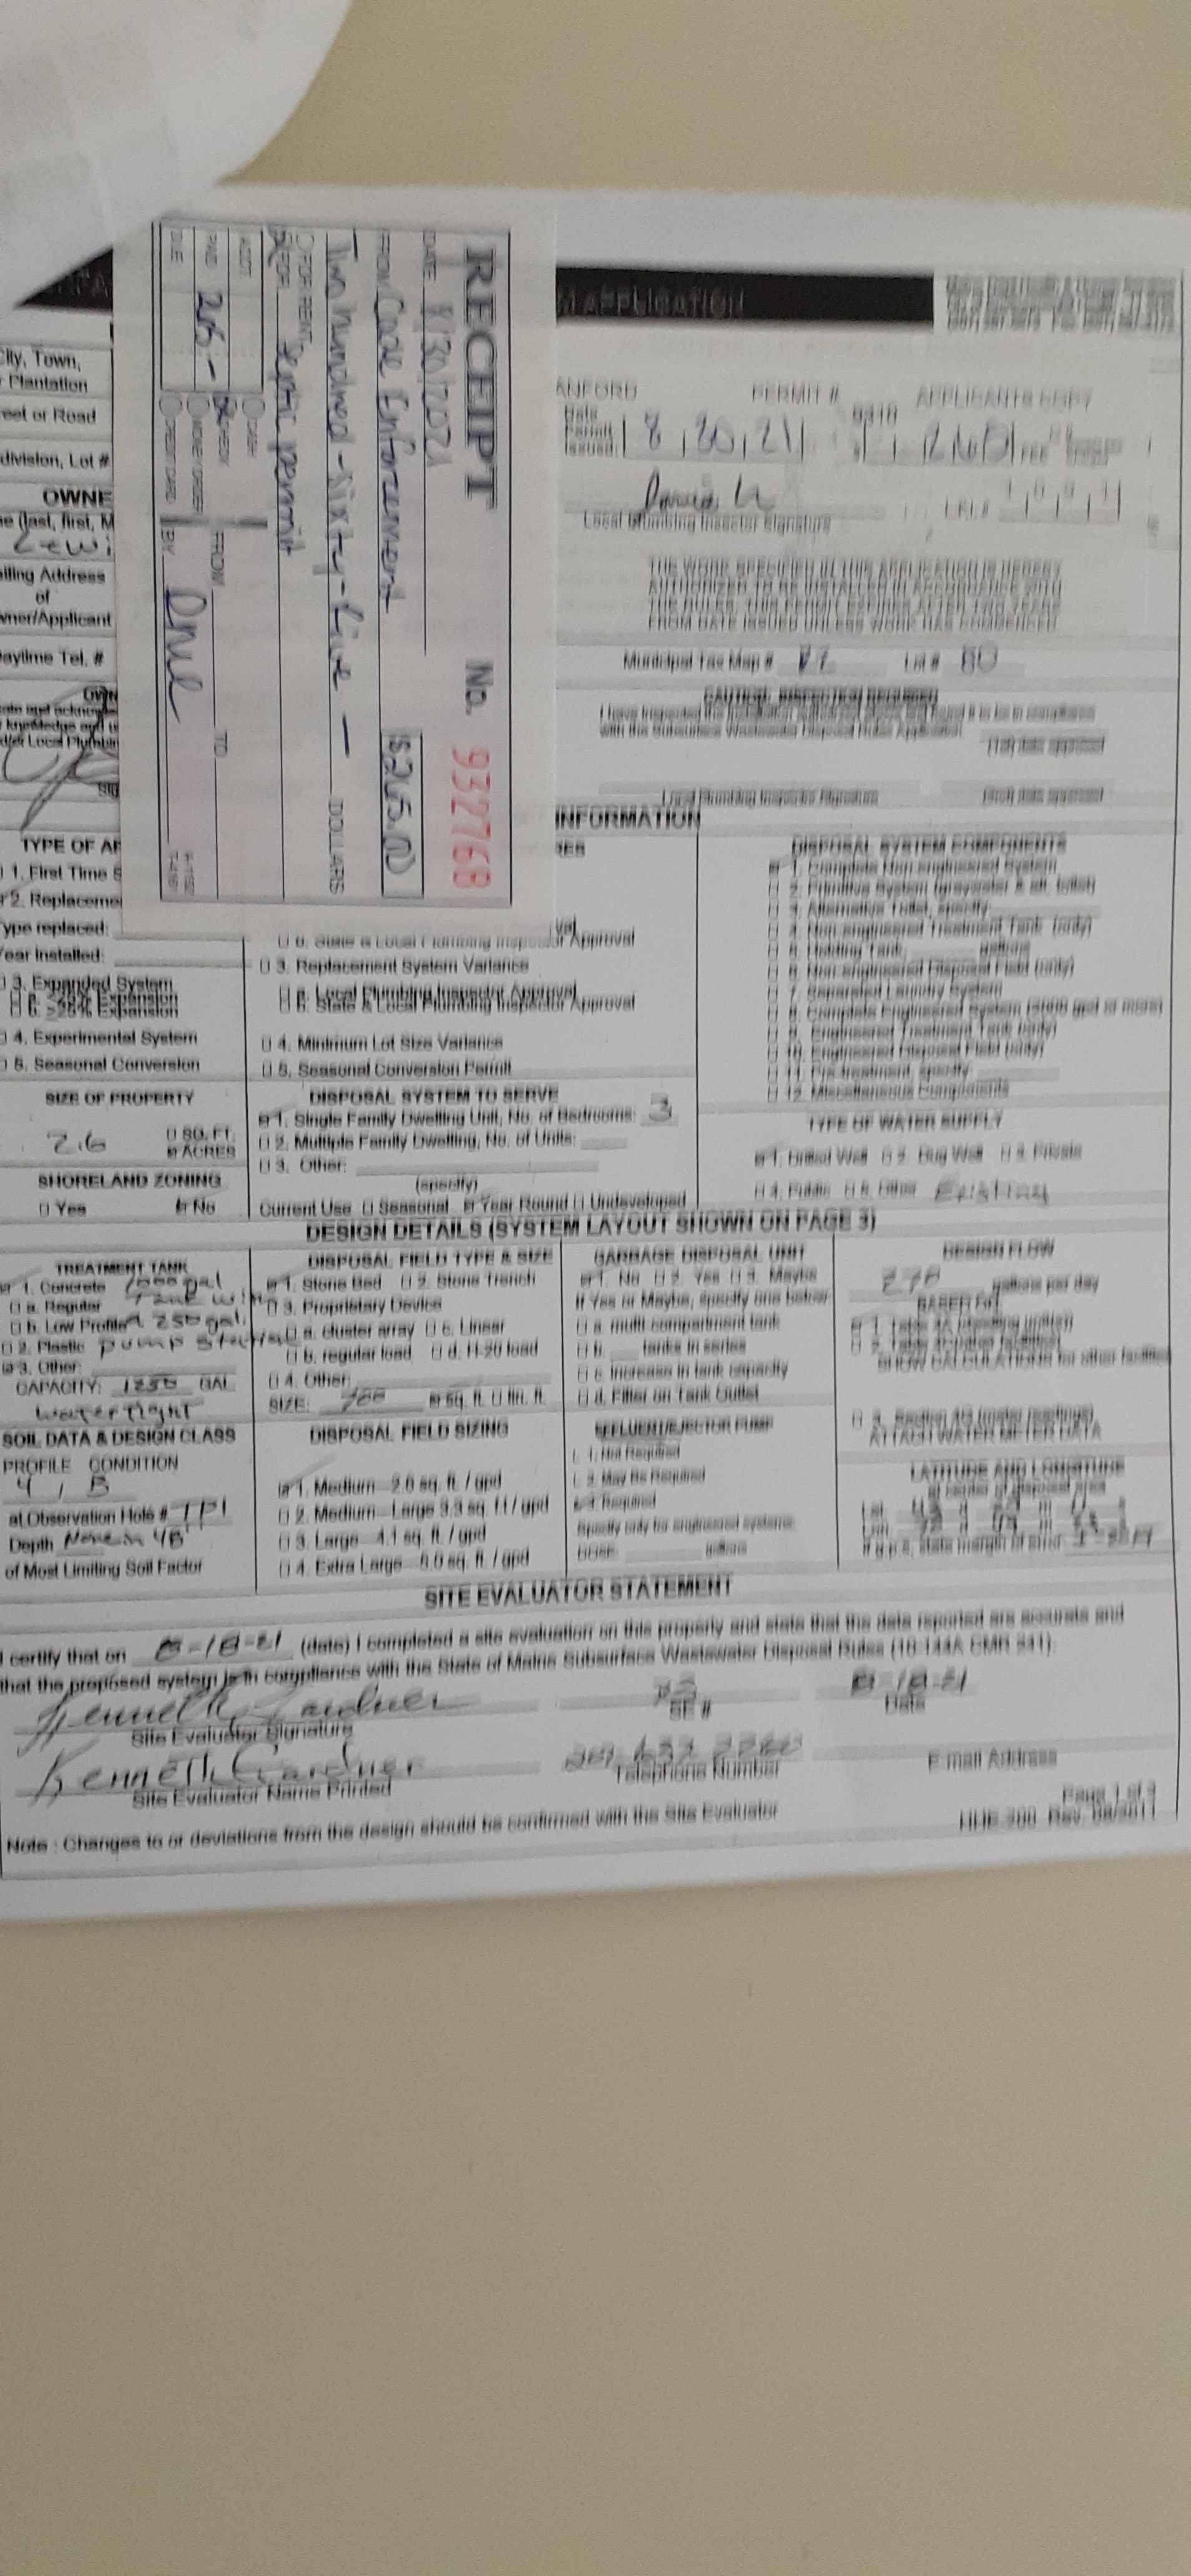 RECEIPT No. 932768
DATE 8/30/2021
FROM Code Enforcement $265.00
Two hundred-sixty-five — DOLLARS
FOR RENT
FOR septic permit
ACCT.
PAID 265-
DUE
CASH
CHECK
MONEY ORDER
CREDIT CARD
FROM TO
BY
APPLICATION
City, Town,
Plantation
or Road
division, Lot #
OWNE
(last, first, M
Mailing Address
of
Owner/Applicant
Daytime Tel. #
ANFORD PERMIT # 9310 APPLICANTS COPY
Date Permit Issued: 8, 30, 21
Local Plumbing Inspector Signature
THE WORK SPECIFIED IN THIS APPLICATION IS HEREBY
AUTHORIZED TO BE INSTALLED IN ACCORDANCE WITH
THE RULES. THIS PERMIT EXPIRES AFTER TWO YEARS
FROM DATE ISSUED UNLESS WORK HAS COMMENCED
Municipal Tax Map # Lot # 80
CAUTION: INSPECTION REQUIRED
I have inspected the installation authorized above and found it to be in compliance
with the Subsurface Wastewater Disposal Rules Application.
(1st) date approved
Local Plumbing Inspector Signature (2nd) date approved
INFORMATION
TYPE OF AP
1. First Time S
2. Replaceme
Type replaced:
Year Installed:
3. Expanded System
a. <25% Expansion
b. >25% Expansion
4. Experimental System
5. Seasonal Conversion
b. State & Local Plumbing Inspector Approval
3. Replacement System Variance
a. Local Plumbing Inspector Approval
b. State & Local Plumbing Inspector Approval
4. Minimum Lot Size Variance
5. Seasonal Conversion Permit
DISPOSAL SYSTEM COMPONENTS
1. Complete Non-engineered System
2. Primitive System (graywater & alt. toilet)
3. Alternative Toilet, specify:
4. Non-engineered Treatment Tank (only)
5. Holding Tank, gallons
6. Non-engineered Disposal Field (only)
7. Separated Laundry System
8. Complete Engineered System (2000 gpd or more)
9. Engineered Treatment Tank (only)
10. Engineered Disposal Field (only)
11. Pre-treatment, specify:
12. Miscellaneous Components
SIZE OF PROPERTY
2.6 SQ. FT. ACRES
SHORELAND ZONING
Yes No
DISPOSAL SYSTEM TO SERVE
1. Single Family Dwelling Unit, No. of Bedrooms: 3
2. Multiple Family Dwelling, No. of Units:
3. Other:
(specify)
Current Use Seasonal Year Round Undeveloped
TYPE OF WATER SUPPLY
1. Drilled Well 2. Dug Well 3. Private
4. Public 5. Other Existing
DESIGN DETAILS (SYSTEM LAYOUT SHOWN ON PAGE 3)
TREATMENT TANK
1. Concrete 1000 gal
a. Regular Tank with
b. Low Profile 250 gal.
2. Plastic pump station
3. Other:
CAPACITY: 1250 GAL.
watertight
DISPOSAL FIELD TYPE & SIZE
1. Stone Bed 2. Stone Trench
3. Proprietary Device
a. cluster array c. Linear
b. regular load d. H-20 load
4. Other:
SIZE: 700 sq. ft. lin. ft.
GARBAGE DISPOSAL UNIT
1. No 2. Yes 3. Maybe
If Yes or Maybe, specify one below:
a. multi-compartment tank
b. tanks in series
c. increase in tank capacity
d. Filter on Tank Outlet
DESIGN FLOW
270 gallons per day
BASED ON:
SHOW CALCULATIONS for other facilities
3. Section 4G (meter readings)
ATTACH WATER METER DATA
SOIL DATA & DESIGN CLASS
PROFILE CONDITION
4 / B
at Observation Hole # TP1
Depth None in 48"
of Most Limiting Soil Factor
DISPOSAL FIELD SIZING
1. Medium—2.6 sq. ft. / gpd
2. Medium—Large 3.3 sq. ft / gpd
3. Large—4.1 sq. ft. / gpd
4. Extra Large—5.0 sq. ft. / gpd
EFFLUENT/EJECTOR PUMP
1. Not Required
2. May Be Required
3. Required
Specify only for engineered systems:
DOSE: gallons
LATITUDE AND LONGITUDE
at center of disposal area
if g.p.s, state margin of error:
SITE EVALUATOR STATEMENT
I certify that on 8-18-21 (date) I completed a site evaluation on this property and state that the data reported are accurate and
that the proposed system is in compliance with the State of Maine Subsurface Wastewater Disposal Rules (10-144A CMR 241).
Kenneth Gardner 8-18-21
Site Evaluator Signature SE # Date
Kenneth Gardner
Site Evaluator Name Printed Telephone Number E-mail Address
Page 1 of 3
Note : Changes to or deviations from the design should be confirmed with the Site Evaluator
HHE-200 Rev. 08/2011